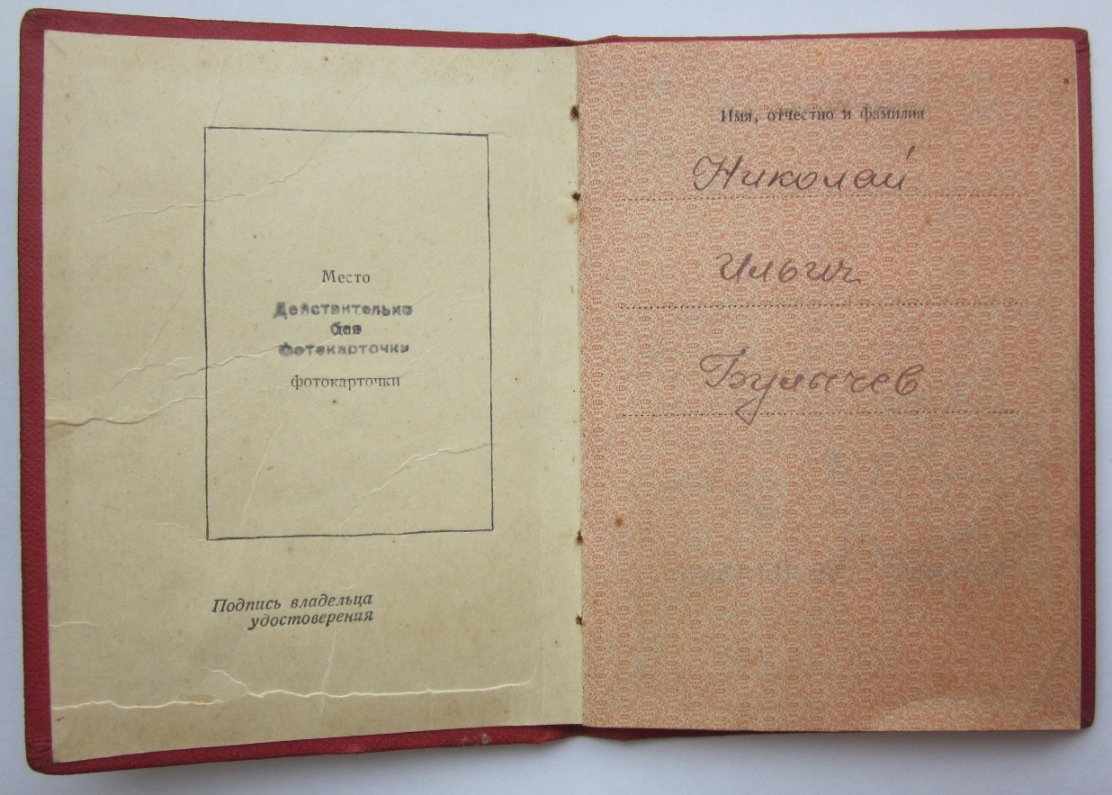 Место
Действительно
без
фотокарточки
фотокарточки
Подпись владельца
удостоверения
Имя, отчество и фамилия
Николай
Ильич
Булычев